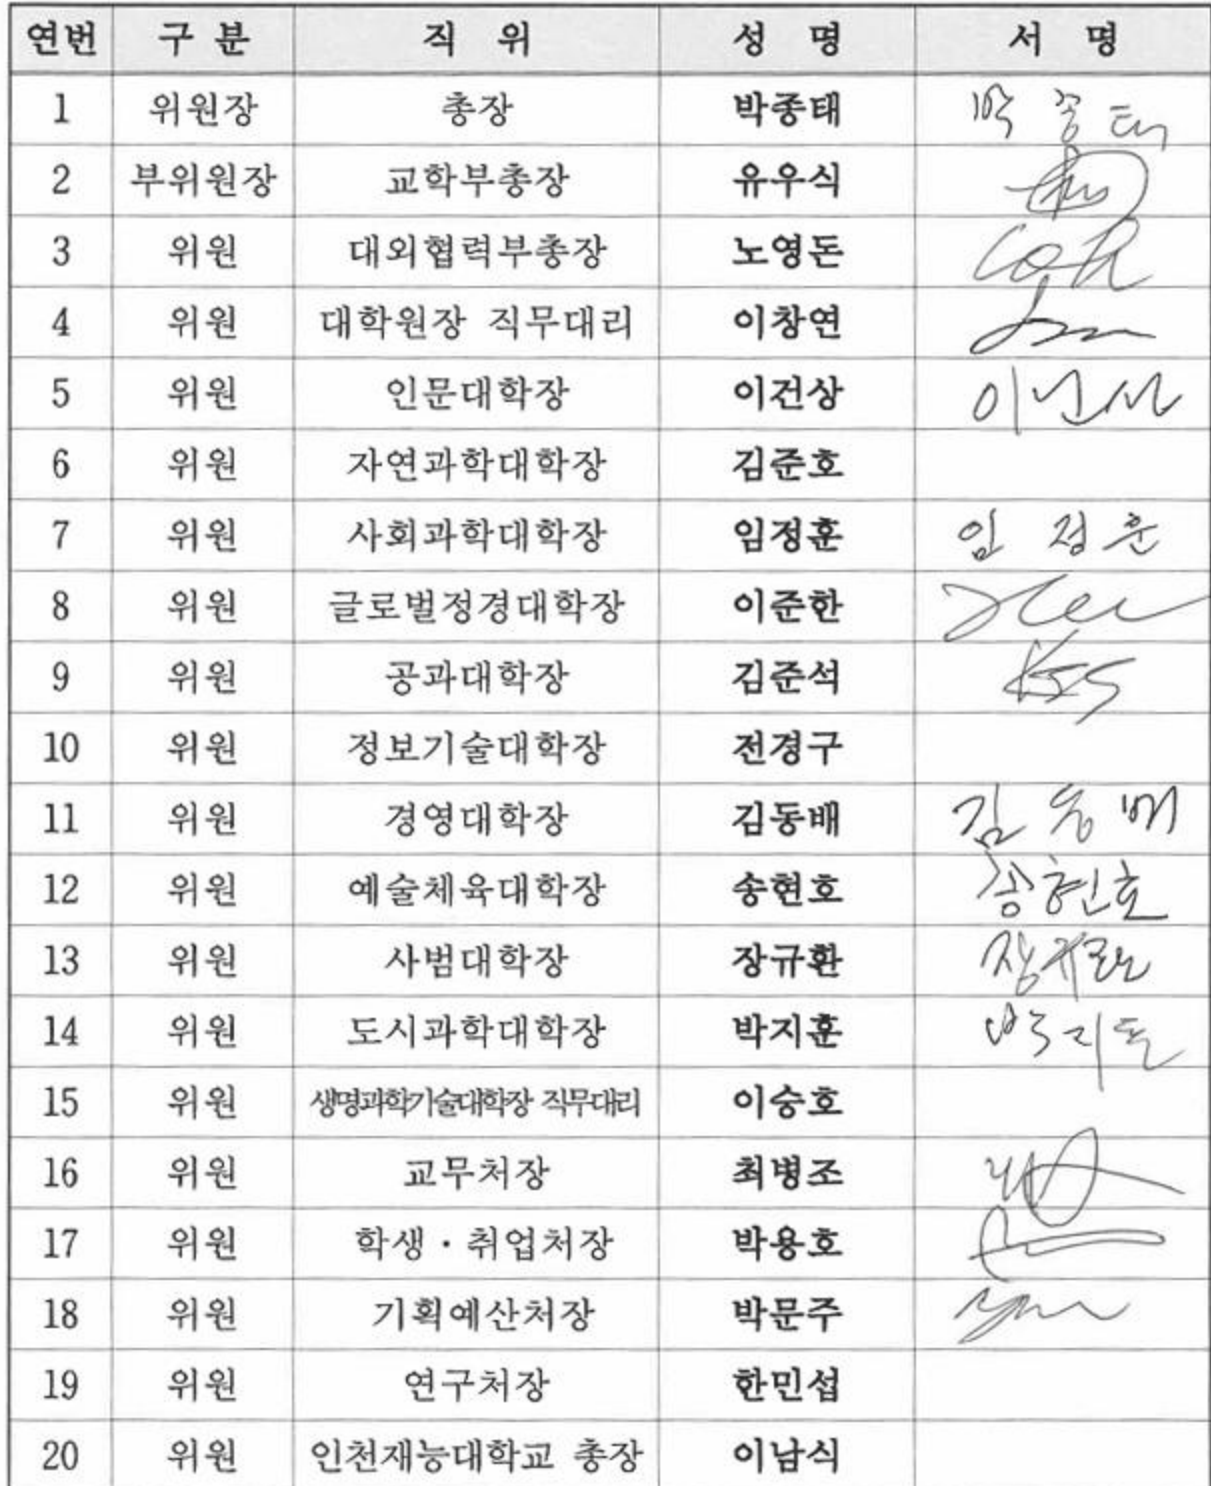 연번 구 분 직 위 성 명 서 명
1 위원장 총장 박종태 박종태
2 부위원장 교학부총장 유우식
3 위원 대외협력부총장 노영돈
4 위원 대학원장 직무대리 이창연
5 위원 인문대학장 이건상
6 위원 자연과학대학장 김준호
7 위원 사회과학대학장 임정훈 임정훈
8 위원 글로벌정경대학장 이준한
9 위원 공과대학장 김준석
10 위원 정보기술대학장 전경구
11 위원 경영대학장 김동배 김동배
12 위원 예술체육대학장 송현호 송현호
13 위원 사범대학장 장규환
14 위원 도시과학대학장 박지훈 박지훈
15 위원 생명과학기술대학장 직무대리 이승호
16 위원 교무처장 최병조
17 위원 학생·취업처장 박용호
18 위원 기획예산처장 박문주
19 위원 연구처장 한민섭
20 위원 인천재능대학교 총장 이남식